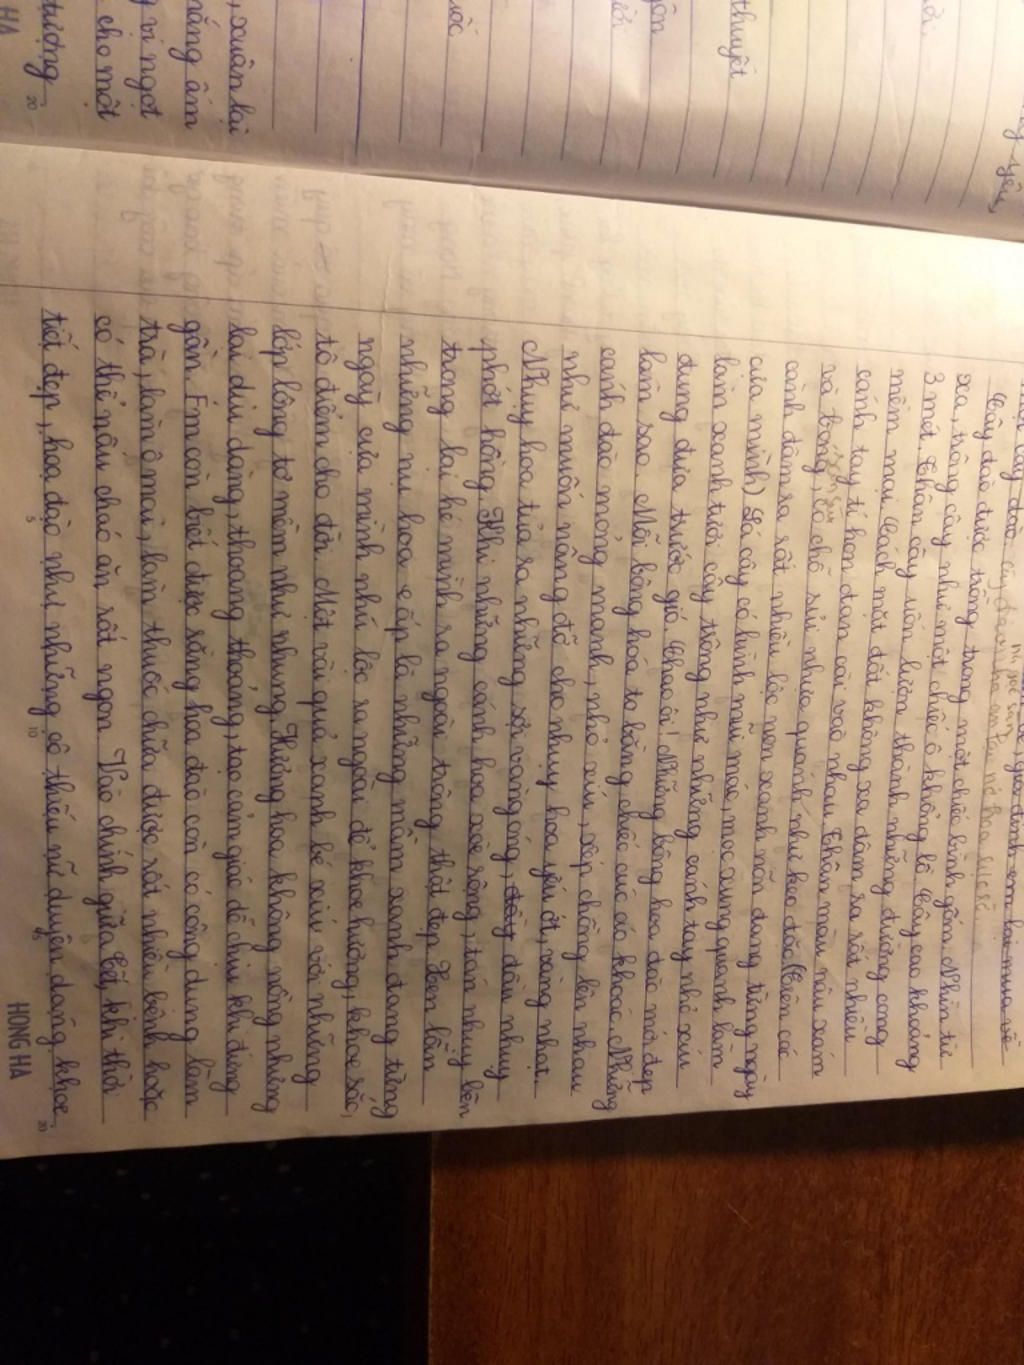 Cây đào được trồng trong một chiếc bình gốm. Nhìn từ
xa, trông cây như một chiếc ô khổng lồ. Cây cao khoảng
3 mét. Thân cây uốn lượn thành những đường cong
mềm mại. Cách mặt đất không xa đâm ra rất nhiều
cánh tay tí hon đan cài vào nhau. Thân màu nâu xám
và bong, có chỗ sùi nhựa quánh như keo đặc. Trên các
cành đâm ra rất nhiều lộc non xanh nõn đang từng ngày
của mình) Lá cây có hình mũi mác, mọc xung quanh làm
làm xanh tươi cây trông như những cánh tay nhỏ xíu
đung đưa trước gió. Chao ôi! Những bông hoa đào mới đẹp
làm sao. Mỗi bông hoa to bằng chiếc cúc áo khoác. Những
cánh đào mỏng manh, nhỏ xíu, xếp chồng lên nhau
như muốn nâng đỡ cho nhụy hoa yếu ớt, vàng nhạt.
Nhụy hoa tủa ra những sợi vàng óng, đầu nhụy
phớt hồng. Khi những cánh hoa xòe rộng, tán nhụy bên
trong lại hé mình ra ngoài trông thật đẹp. Xen lẫn
những nụ hoa e ấp là những mầm xanh đang từng
ngày cựa mình nhú lộc ra ngoài để khoe hương, khoe sắc,
tô điểm cho đời. Một vài quả xanh bé xíu với những
lớp lông tơ mềm như nhung. Hương hoa không nồng nhưng
lại dịu dàng, thoang thoảng, tạo cảm giác dễ chịu khi đứng
gần. Em còn biết được rằng hoa đào còn có công dụng làm
trà, làm ô mai, làm thuốc chữa được rất nhiều bệnh hoặc
có thể nấu cháo ăn rất ngon. Vào chính giữa Tết, khi thời
tiết đẹp, hoa đào như những cô thiếu nữ duyên dáng khoe
HONG HA
5
10
15
20
, xuân lại
nắng ấm
vị ngọt
cho một
tượng
20
thuyết